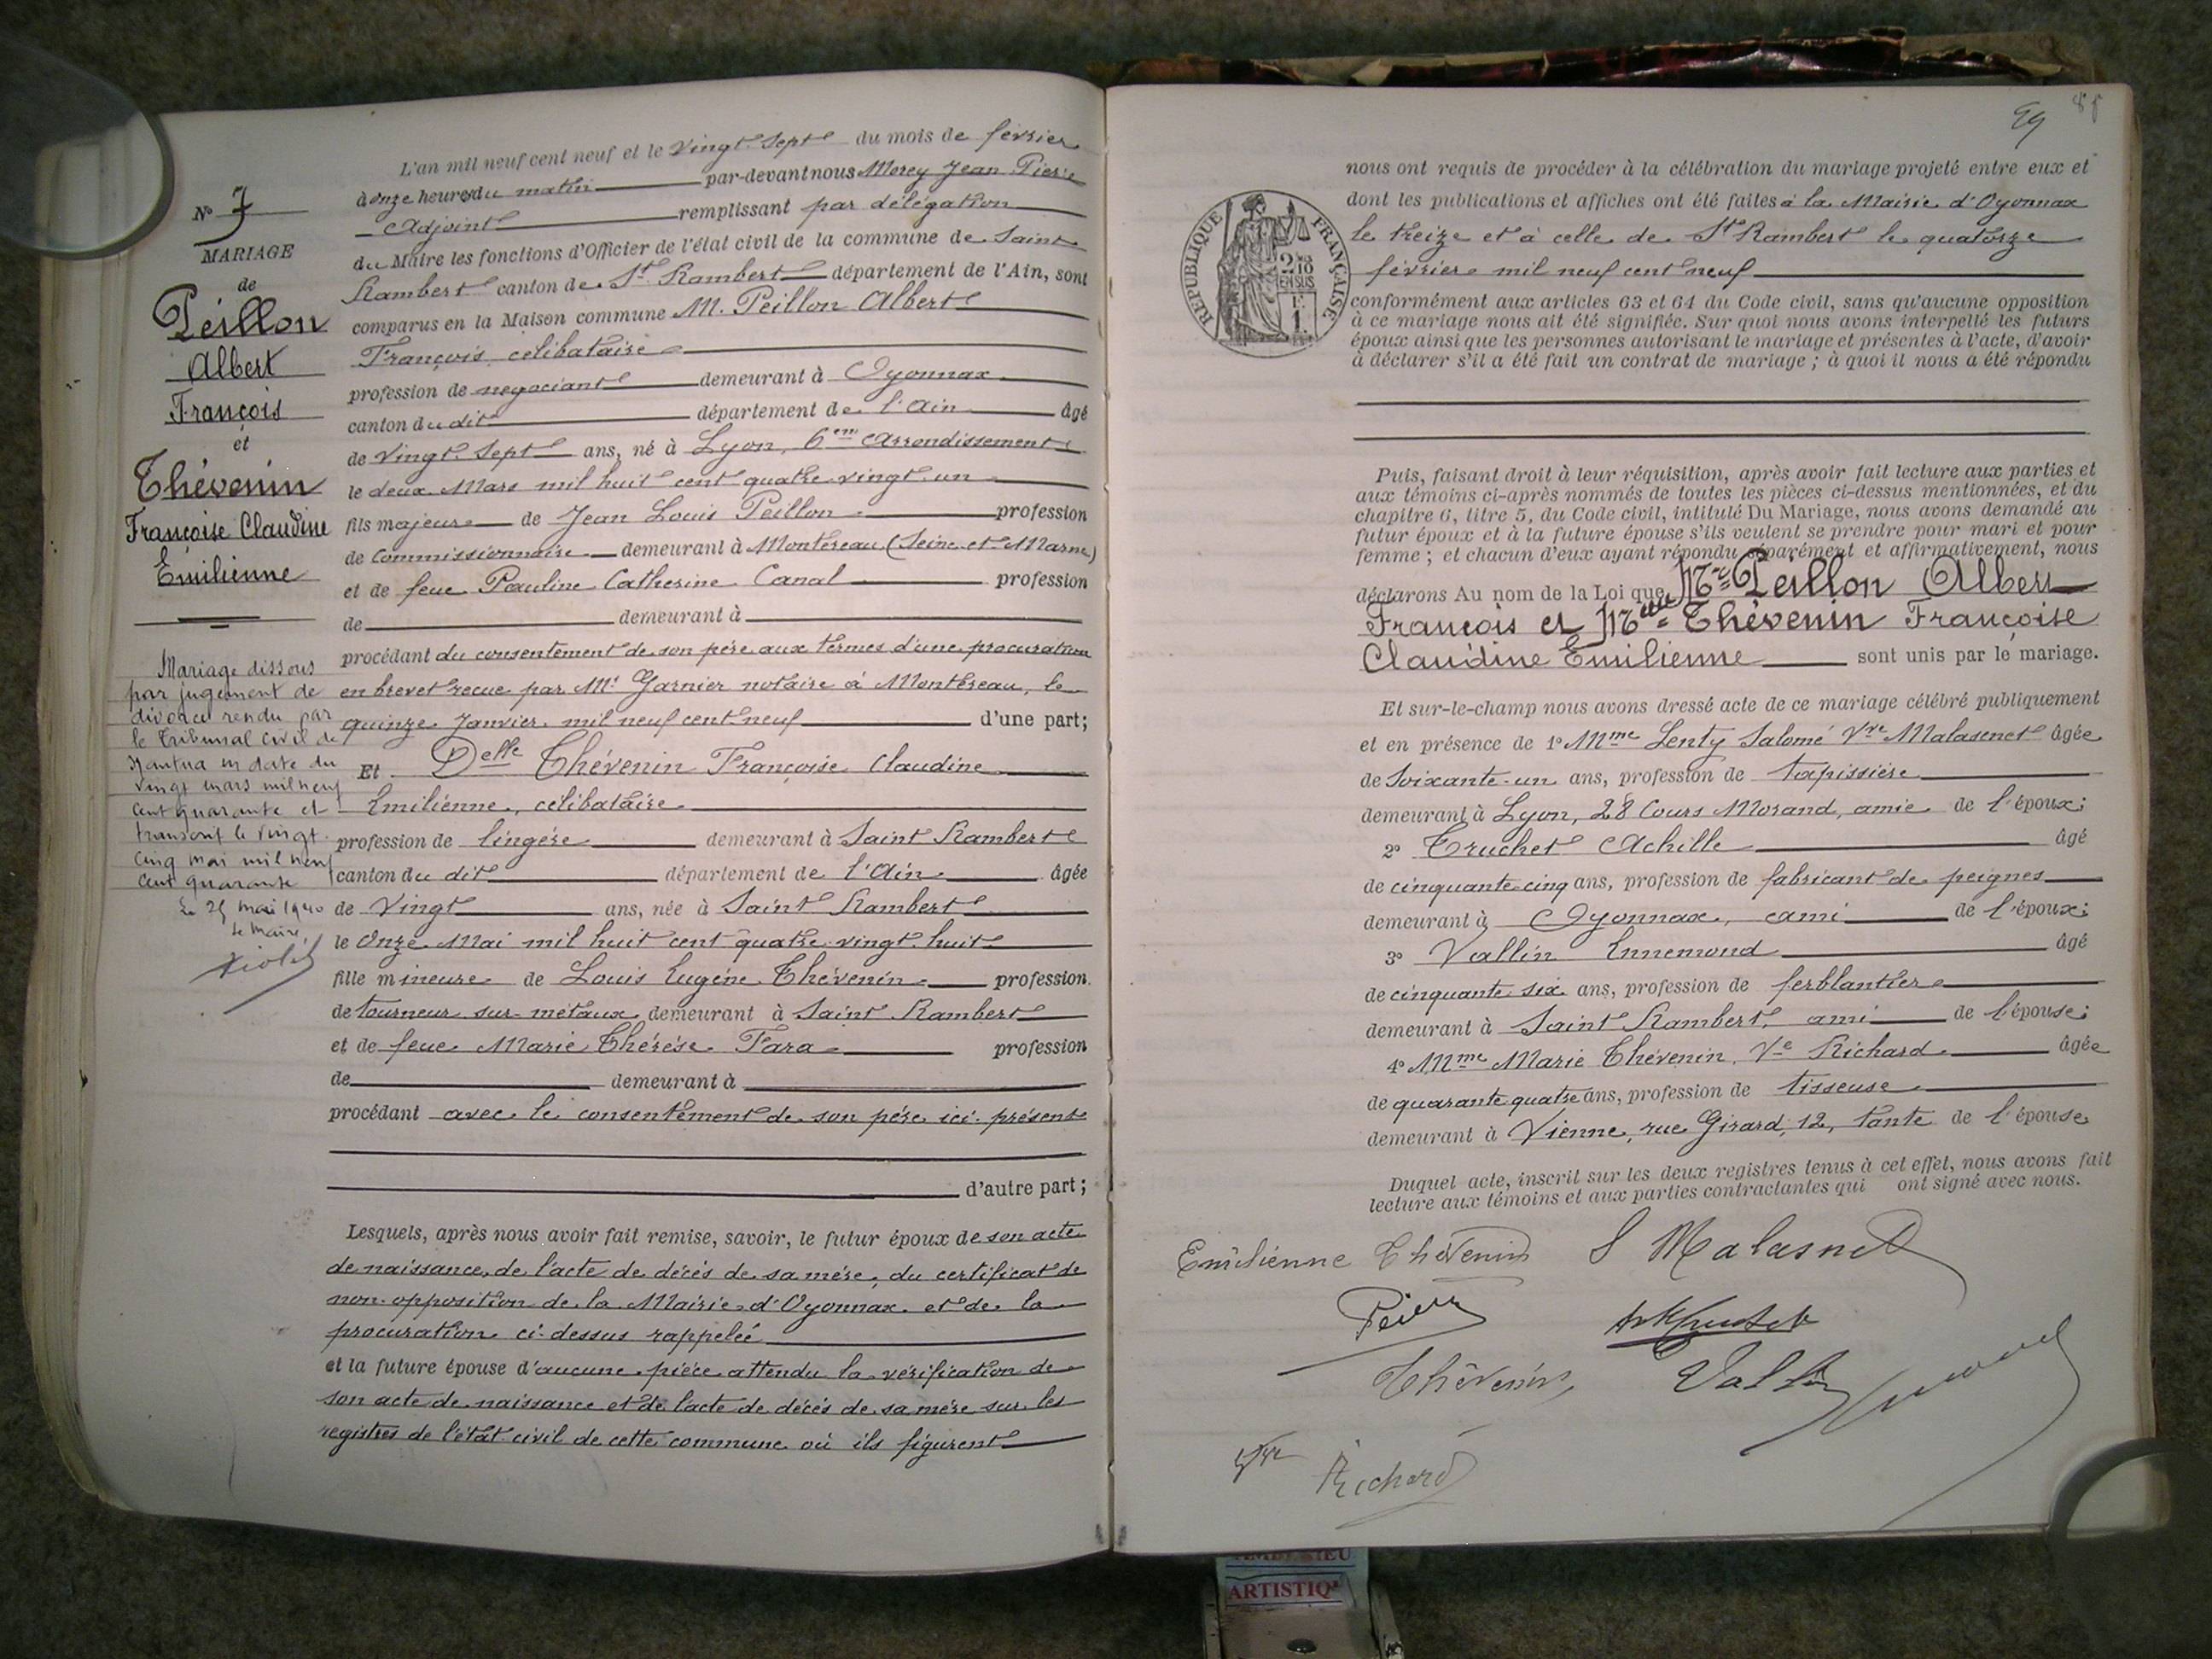 N° 7
MARIAGE
de
Peillon
Albert
François
et
Thévenin
Françoise Claudine
Emilienne
Mariage dissous
par jugement de
divorce rendu par
le Tribunal civil de
Nantua en date du
vingt mars mil neuf
cent quarante et
transcrit le vingt
cinq mai mil neuf
cent quarante
Le 25 mai 1940
Le Maire
L'an mil neuf cent neuf et le vingt sept du mois de février
à onze heures du matin par-devant nous Morey Jean Pierre
Adjoint remplissant par délégation
du Maire les fonctions d'Officier de l'état civil de la commune de Saint
Rambert canton de St Rambert département de l'Ain, sont
comparus en la Maison commune M. Peillon Albert
François célibataire
profession de négociant demeurant à Oyonnax
canton du dit département de l'Ain âgé
de vingt sept ans, né à Lyon, 6em Arrondissement
le deux Mars mil huit cent quatre vingt un
fils majeur de Jean Louis Peillon profession
de Commissionnaire demeurant à Montereau (Seine et Marne)
et de feue Pauline Catherine Canal profession
de demeurant à
procédant du consentement de son père aux termes d'une procuration
en brevet recue par Me Garnier notaire à Montereau, le
quinze Janvier mil neuf cent neuf d'une part;
Et Delle Thévenin Françoise Claudine
Emilienne, célibataire
profession de lingère demeurant à Saint Rambert
canton du dit département de l'Ain âgée
de Vingt ans, née à Saint Rambert
le Onze Mai mil huit cent quatre vingt huit
fille mineure de Louis Eugène Thévenin profession
de tourneur sur métaux demeurant à Saint Rambert
et de feue Marie Thérèse Fara profession
de demeurant à
procédant avec le consentement de son père ici présent
d'autre part;
Lesquels, après nous avoir fait remise, savoir, le futur époux de son acte
de naissance, de l'acte de décés de sa mére, du certificat de
non-opposition de la Mairie d'Oyonnax et de la
procuration ci-dessus rappelée
et la future épouse d'aucune pièce attendu la vérification de
son acte de naissance et de l'acte de décés de sa mère sur les
registres de l'état civil de cette commune où ils figurent
89
nous ont requis de procéder à la célébration du mariage projeté entre eux et
dont les publications et affiches ont été faites à la Mairie d'Oyonnax
le treize et à celle de St Rambert le quatorze
février mil neuf cent neuf
RÉPUBLIQUE FRANÇAISE
2/10
EN SUS
1 F.
conformément aux articles 63 et 64 du Code civil, sans qu'aucune opposition
à ce mariage nous ait été signifiée. Sur quoi nous avons interpellé les futurs
époux ainsi que les personnes autorisant le mariage et présentes à l'acte, d'avoir
à déclarer s'il a été fait un contrat de mariage; à quoi il nous a été répondu
Puis, faisant droit à leur réquisition, après avoir fait lecture aux parties et
aux témoins ci-après nommés de toutes les pièces ci-dessus mentionnées, et du
chapitre 6, titre 5, du Code civil, intitulé Du Mariage, nous avons demandé au
futur époux et à la future épouse s'ils veulent se prendre pour mari et pour
femme; et chacun d'eux ayant répondu séparément et affirmativement, nous
déclarons Au nom de la Loi que Mr Peillon Albert
François et Melle Thévenin Françoise
Claudine Emilienne sont unis par le mariage.
Et sur-le-champ nous avons dressé acte de ce mariage célébré publiquement
et en présence de 1° Mme Lenty Salomé Vve Malasenet âgée
de Soixante-un ans, profession de tapissière
demeurant à Lyon, 28 Cours Morand, amie de l'époux;
2° Truchet Achille âgé
de cinquante cinq ans, profession de fabricant de peignes
demeurant à Oyonnax, ami de l'époux;
3° Vallin Ennemond âgé
de cinquante six ans, profession de ferblantier
demeurant à Saint Rambert, ami de l'épouse;
4° Mme Marie Thévenin, Ve Richard âgée
de quarante quatre ans, profession de tisseuse
demeurant à Vienne, rue Girard, 12, tante de l'épouse
Duquel acte, inscrit sur les deux registres tenus à cet effet, nous avons fait
lecture aux témoins et aux parties contractantes qui ont signé avec nous.
Emilienne Thévenin S Malasnet
Thévenin
Richard
ARTISTIQ